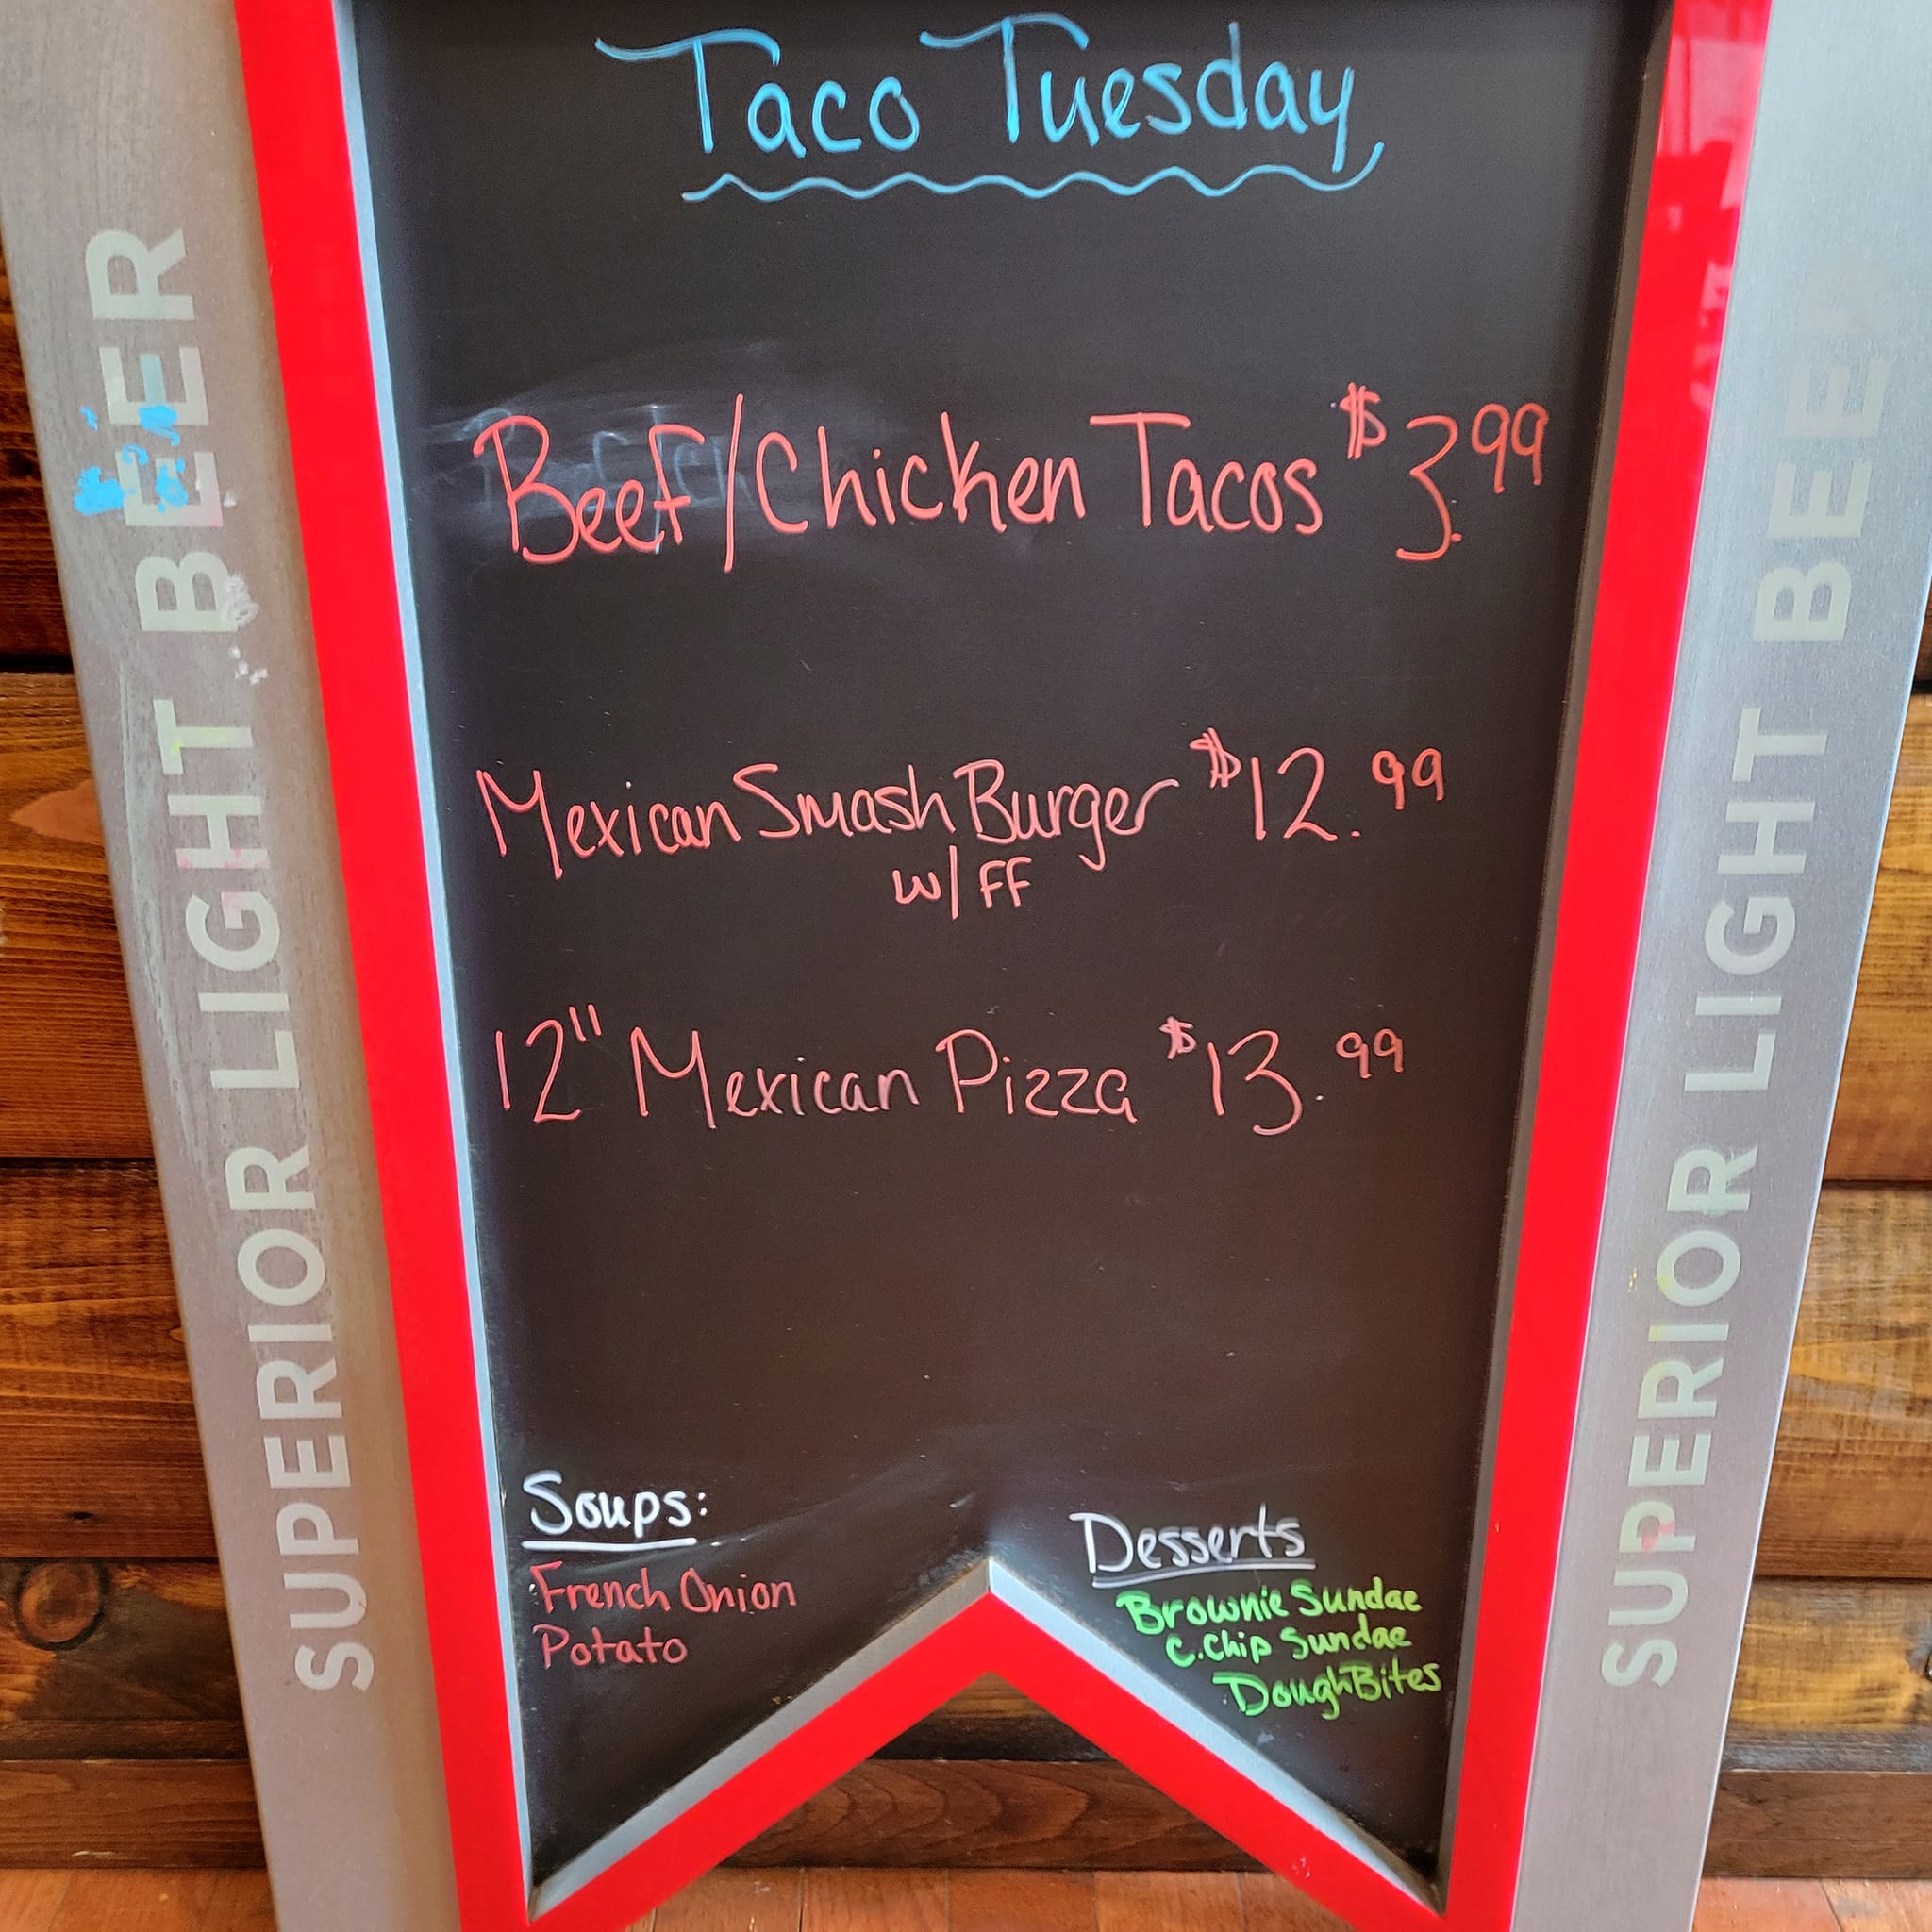 Taco Tuesday
Beef/Chicken Tacos $3.99
Mexican Smash Burger $12.99
w/ FF
12" Mexican Pizza $13.99
Soups:
French Onion
Potato
Desserts
Brownie Sundae
C.Chip Sundae
Dough Bites
SUPERIOR LIGHT BEER
SUPERIOR LIGHT BEER